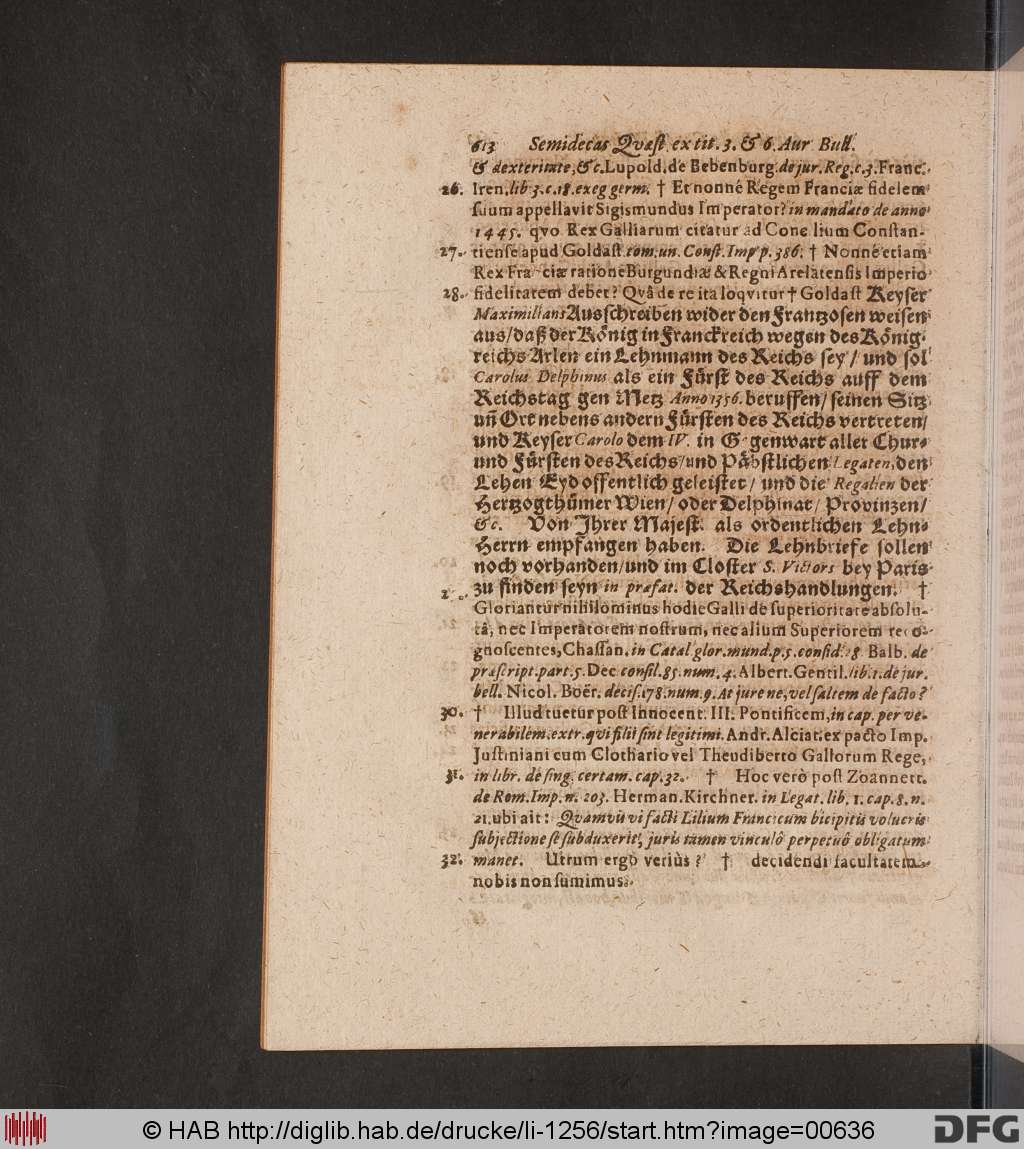 613 Semidecas Qvæst. ex tit. 3. & 6. Aur Bull.
& dexteritate, &c. Lupold. de Bebenburg. de jur. Reg. c. 3. Franc.
26. Iren. lib 3. c. 18. exeg germ. † Et nonné Regem Franciæ fidelem
suum appellavit Sigismundus Imperator? in mandato de anno
1445. qvo Rex Galliarum citatur ad Conc lium Constan-
27. tiense apud Goldast. tom. un. Const. Imp p. 386. † Nonné etiam
Rex Fra ciæ ratione Burgundiæ & Regni Arelatensis Imperio
28. fidelitatem debet? Qvâ de re ita loqvitur † Goldast Keyser
Maximilians Ausschreiben wider den Frantzosen weisen
aus/ daß der König in Franckreich wegen des König-
reichs Arlen ein Lehnmann des Reichs sey/ und sol
Carolus Delphinus als ein Fürst des Reichs auff dem
Reichstag gen Metz Anno 1356. beruffen/ seinen Sitz
uñ Ort nebens andern Fürsten des Reichs vertreten/
und Keyser Carolo dem IV. in G genwart aller Chur-
und Fürsten des Reichs/ und Päbstlichen Legaten, den
Lehen Eyd offentlich geleistet/ und die Regalien der
Hertzogthümer Wien/ oder Delphinat/ Provinzen/
&c. Von Ihrer Majest. als ordentlichen Lehn-
Herrn empfangen haben. Die Lehnbriefe sollen
noch vorhanden/ und im Closter S. Victors bey Paris
zu finden seyn in præfat. der Reichshandlungen. †
Gloriantur nihilominus hodie Galli de superioritate absolu-
tâ, nec Imperatorem nostrum, nec alium Superiorem reco-
gnoscentes, Chassan. in Catal glor. mund. p. 5. consid. 28 Balb. de
præscript. part. 5. Dec consil. 85. num. 4. Albert. Gentil. lib. 1. de jur.
bell. Nicol. Boër. decis. 178. num. 9. At jure ne, vel saltem de facto?
30. † Illud tuetur post Innocent. III. Pontificem, in cap. per ve-
nerabilem. extr. qvi filii sint legitimi. Andr. Alciat. ex pacto Imp.
Justiniani cum Clothario vel Theudiberto Gallorum Rege,
31. in libr. de sing. certam. cap. 32. † Hoc verò post Zoannett.
de Rom. Imp. n. 203. Herman. Kirchner. in Legat. lib. 1. cap. 8. n.
21. ubi ait: Qvamvis vi facti Lilium Francicum bicipitis volucris
subjectione se subduxerit, juris tamen vinculô perpetuô obligatum
32. manet. Utrum ergo veriùs? † decidendi facultatem
nobis non sumimus.
© HAB http://diglib.hab.de/drucke/li-1256/start.htm?image=00636
DFG